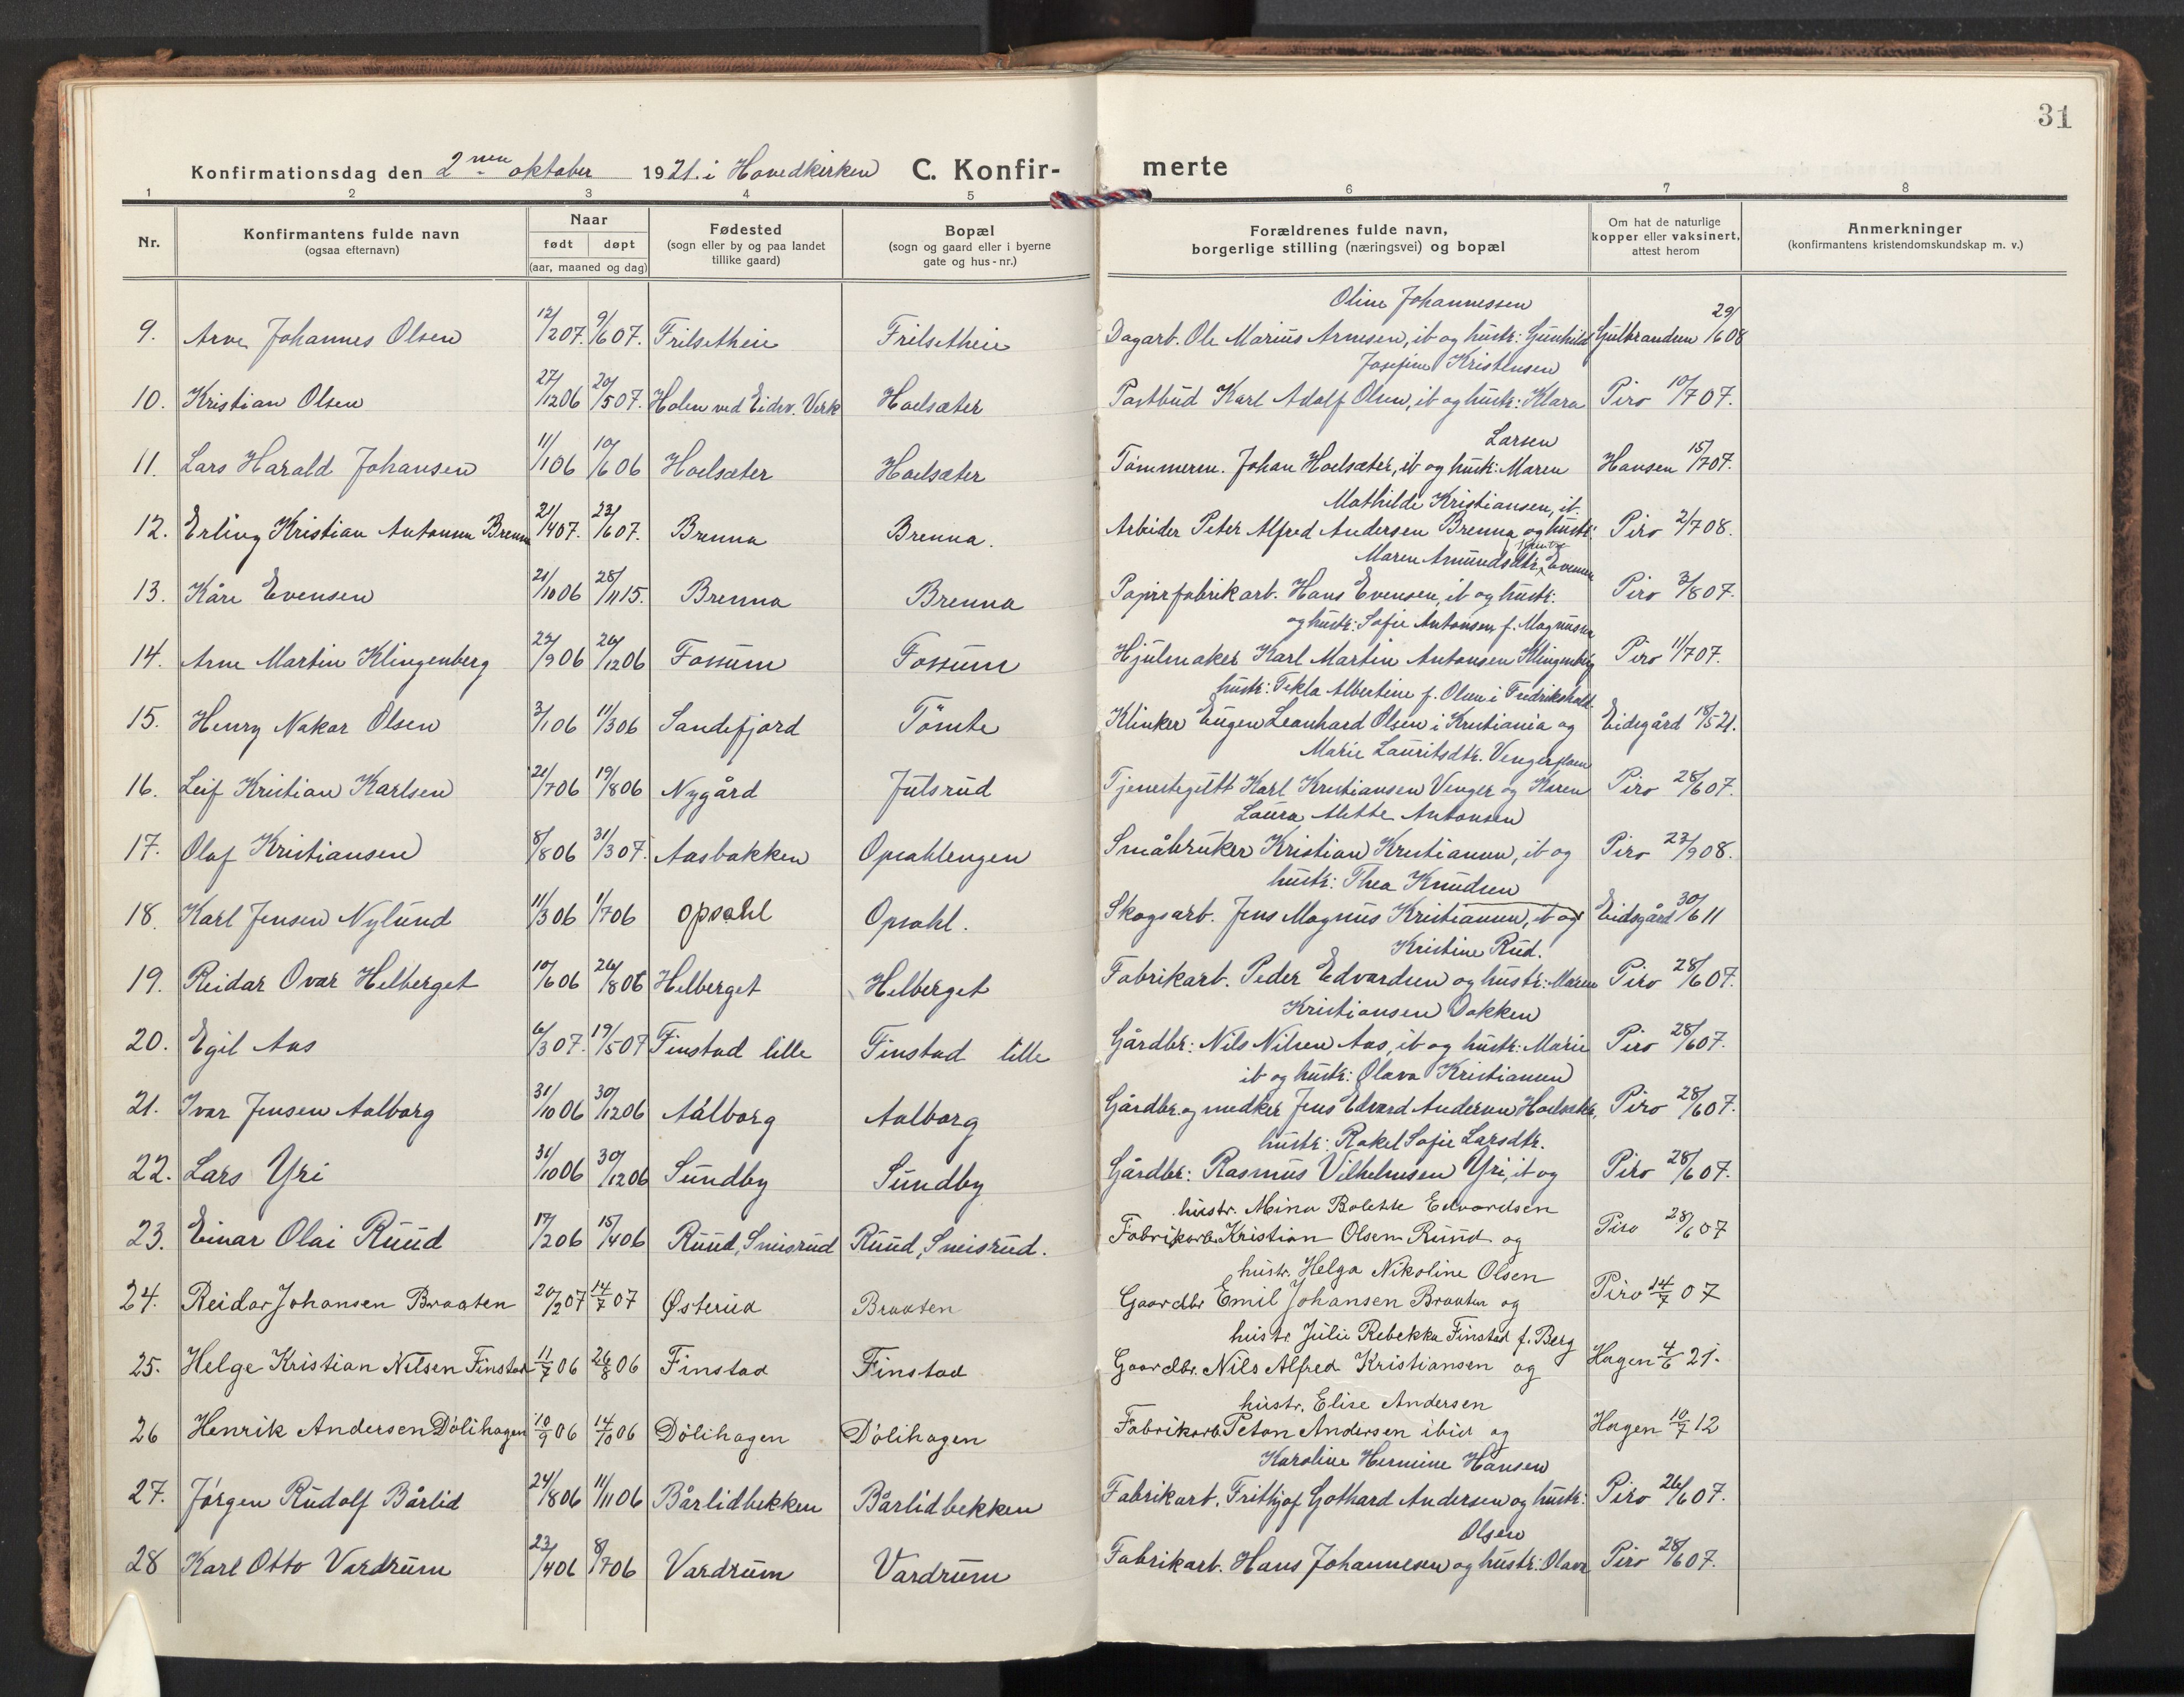 31
Konfirmationsdag den 2nen oktober 1921. i Hovedkirken C. Konfir- merte
1 2 3 4 5 6 7 8
Nr.
Konfirmantens fulde navn
(ogsaa efternavn)
Naar
født døpt
(aar, maaned og dag)
Fødested
(sogn eller by og paa landet
tillike gaard)
Bopæl
(sogn og gaard eller i byerne
gate og hus-nr.)
Forældrenes fulde navn,
borgerlige stilling (næringsvei) og bopæl
Om hat de naturlige
kopper eller vaksinert,
attest herom
Anmerkninger
(konfirmantens kristendomskundskap m. v.)
Oline Johannessen
9. Arne Johannes Olsen 12/2 07. 9/6 07. Frilsetheie Frilsetheie Dagarb. Ole Marius Arnesen, ib og hustr: Gunhild Gulbrandsen 29/6 08
Josefine Kristensen
10. Kristian Olsen 27/12 06 20/5 07. Holen ved Eidsv. Verk Hoelsæter Postbud Karl Adolf Olsen, ib og hustr: Klara Piro 10/7 07.
Larsen
11. Lars Harald Johansen 11/1 06 10/6 06 Hoelsæter Hoelsæter Tømmerm. Johan Hoelsæter, ib og hustr: Maren Hansen 15/7 07.
Mathilde Kristiansen, ib.
12. Erling Kristian Antonsen Brenna 21/4 07. 23/6 07. Brenna Brenna. Arbeider Peter Alfred Andersen Brenna og hustr: Piro 2/7 08.
Maren Amundsdtr. Evensen
13. Kåre Evensen 21/10 06 28/11 15. Brenna Brenna Papirfabrikarb. Hans Evensen, ib og hustr: Piro 3/8 07.
og hustr: Sofie Antonsen f. Magnussen
14. Arne Martin Klingenberg 22/9 06 26/12 06 Fossum Fossum Hjulmaker Karl Martin Antonsen Klingenberg Piro 11/7 07.
hustr: Tekla Albertine f. Olsen i Fredrikshald
15. Henry Nakar Olsen 3/1 06 11/3 06 Sandefjord Tömte Klinker Eugen Leonhard Olsen i Kristiania og Eidsgård 18/5 21.
Marie Lauritsdtr. Vengerfloen
16. Leif Kristian Karlsen 21/7 06 19/8 06 Nygård Julsrud Tjenestegutt Karl Kristiansen Venger og Karen Piro 28/6 07.
Laura Mette Antonsen
17. Olaf Kristiansen 8/8 06 31/3 07. Aasbakken Opsahlengen Småbruker Kristian Kristiansen, ib og Piro 23/9 08.
hustr: Thea Knudsen
18. Karl Jensen Nylund 11/3 06 1/7 06 Opsahl Opsahl. Skogsarb. Jens Magnus Kristiansen, ib og Eidsgård 30/6 11
Kristine Rud.
19. Reidar Ovar Helberget 10/6 06 26/8 06 Helberget Helberget Fabrikarb. Peder Edvardsen og hustr: Maren Piro 28/6 07.
Kristiansen Dokken
20. Egil Aas 6/3 07. 19/5 07 Finstad lille Finstad lille Gårdbr: Nils Nilsen Aas, ib og hustr: Marie Piro 28/6 07.
ib og hustr: Olava Kristiansen
21. Ivar Jensen Aalborg 31/10 06 30/12 06 Aalborg Aalborg Gårdbr. og snedker Jens Edvard Andersen Hoelsæter, Piro 28/6 07.
hustr: Rakel Sofie Larsdtr.
22. Lars Yri 31/10 06 30/12 06 Sundby Sundby Gårdbr: Rasmus Vilhelmsen Yri, ib og Piro 28/6 07.
hustr. Mina Bolette Edvardsen
23. Einar Olai Ruud 17/2 06 15/4 06 Ruud, Smisrud Ruud, Smisrud. Fabrikarb. Kristian Olsen Ruud og Piro 28/6 07
hustr. Helga Nikoline Olsen
24. Reidar Johansen Braaten 20/2 07 14/7 07 Østerud Braaten Gaardbr Emil Johansen Braaten og Piro 14/7 07
hustr. Julie Rebekka Finstad f. Berg
25. Helge Kristian Nilsen Finstad 11/7 06 26/8 06 Finstad Finstad Gaardbr. Nils Alfred Kristiansen og Hagen 4/6 21.
hustr. Elise Andersen
26 Henrik Andersen Dölihagen 10/9 06 14/10 06 Dölihagen Dölihagen Fabrikarb. Andersen ibid og Hagen 10/7 12
Karoline Hermine Hansen
27. Jörgen Rudolf Bårlid 24/8 06 11/11 06 Bårlidbekken Bårlidbekken Fabrikarb. Frithjof Gothard Andersen og hustr: Piro 26/6 07.
Olsen
28 Karl Otto Vardrum 23/4 06 8/7 06 Vardrum Vardrum Fabrikarb. Hans Johannesen og hustr: Olava Piro 28/6 07.